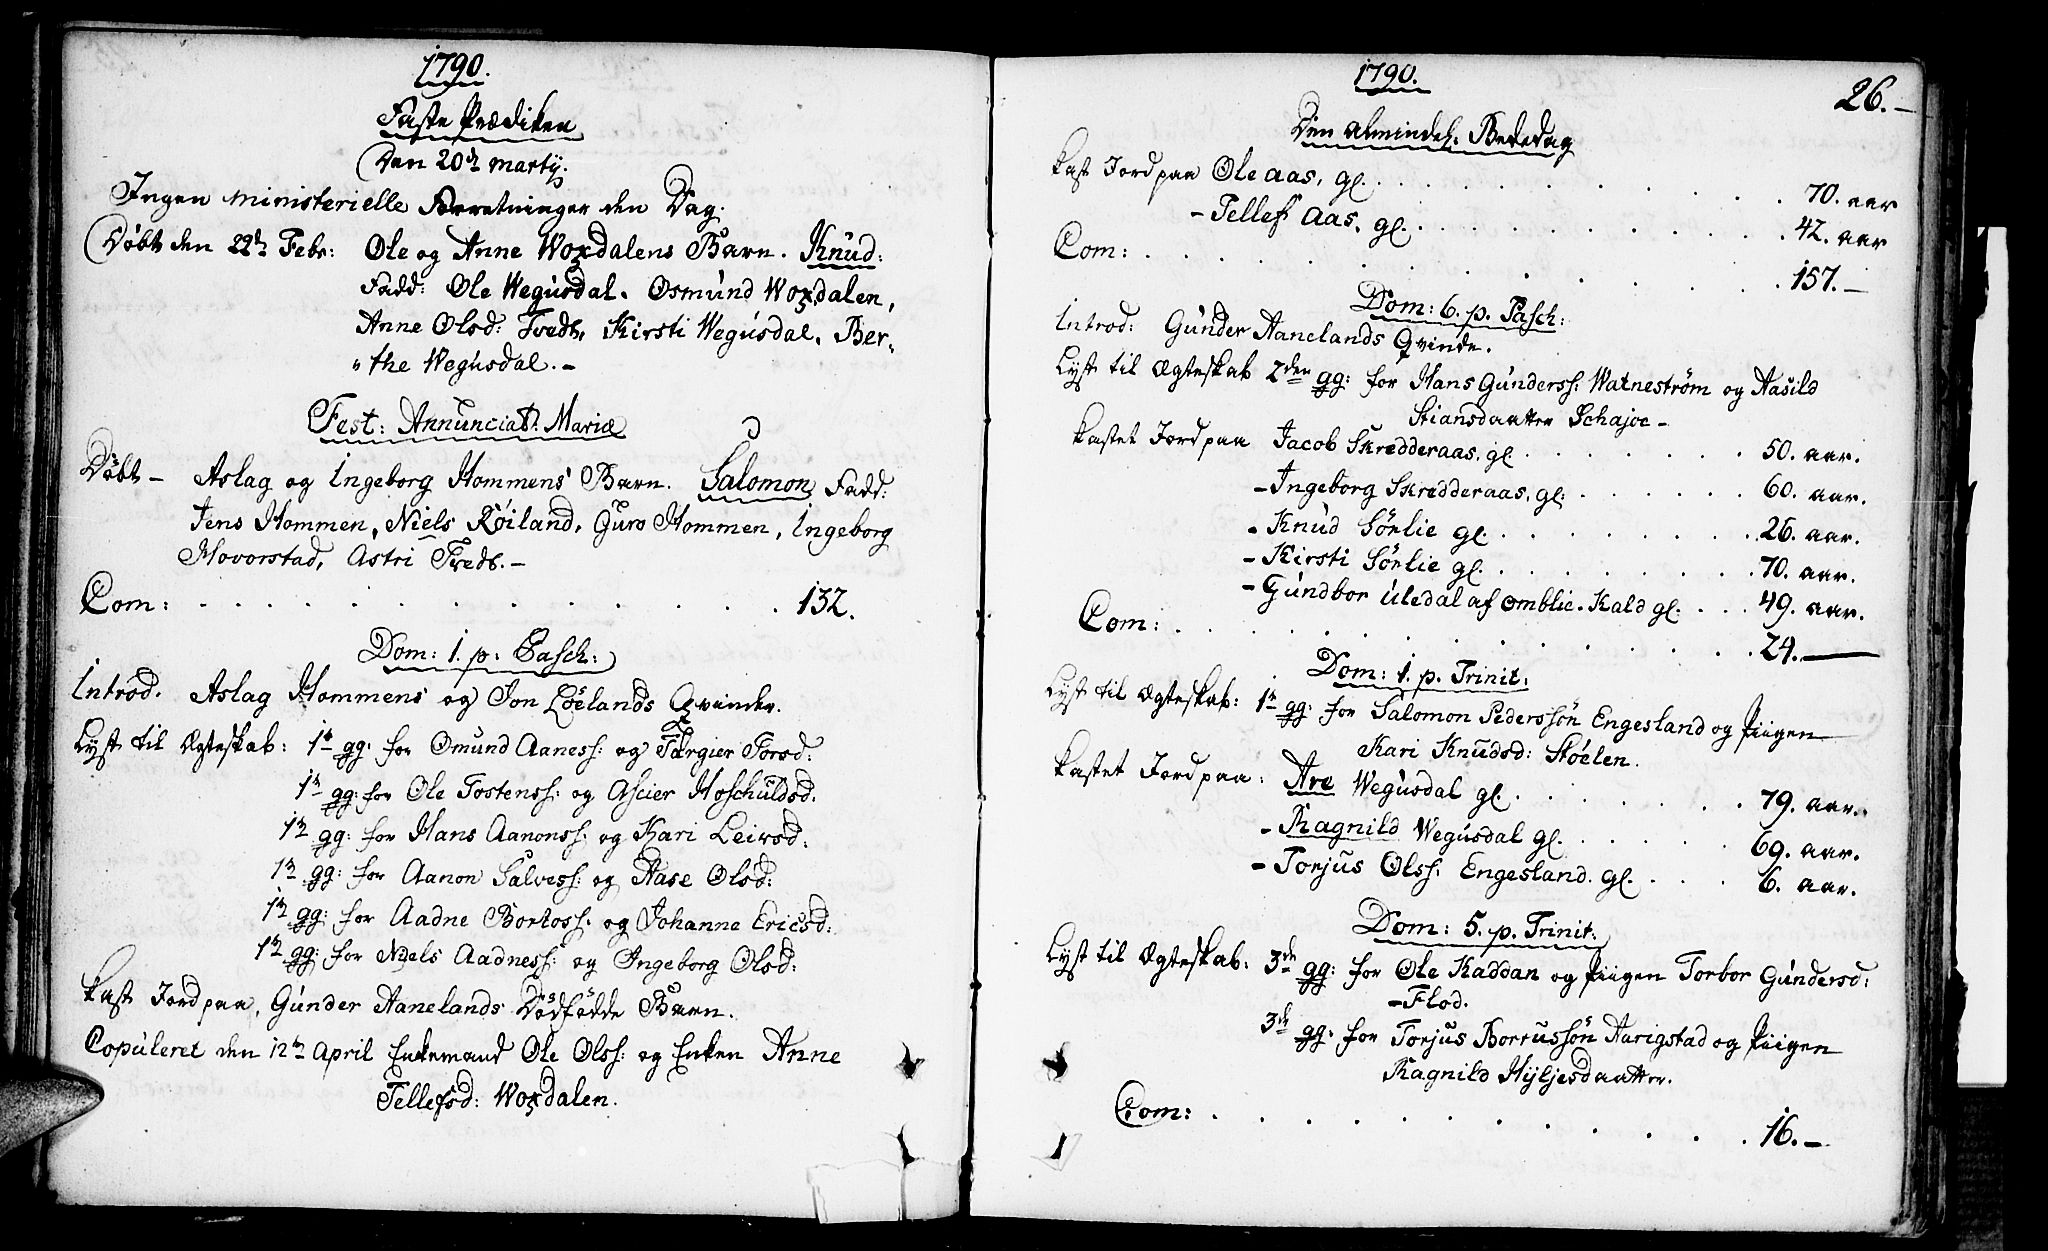 1790.
Faste Prædiken
Den 20de Martij.
Ingen ministerielle Forretninger den Dag.
Døbt den 22de Febr: Ole og Anne Woxdalens Barn. Knud:
Fadd: Ole Wegusdal. Osmund Woxdalen,
Anne Olsd: Tvedt, Kirsti Wegusdal. Ber-
"the Wegusdal. -
Fest: Annunciat: Mariæ
Døbt - Aslag og Ingeborg Hommens Barn. Salomon, Fadd:
Jens Hommen, Niels Røiland, Guro Hommen, Ingeborg
Hovorstad, Astri Tvedt. -
Com: . . . . . . . . . . . . 132.
Dom: 1. p: Pasch:
Introd. Aslag Hommens og Jon Løelands Qvinder.
Lyst til Ægteskab: 1te gg: for Omund Aaness: og Targier Torsd:
1te gg: for Ole Tostenss: og Ascier Hoschuldsd:
1te gg: for Hans Aanonss: og Kari Leivsd:
1te gg: for Aanon Salvess: og Aase Olsd:
1te gg: for Aadne Bortoss: og Johanne Ericsd:
1te gg: for Niels Aadness: og Ingeborg Olsd:
Kast Jord paa, Gunder Aanelands Dødfødde Barn.
Copuleret den 12te April Enkemand Ole Olss: og Enken Anne
Tellefsd: Woxdalen.
1790.
26. -
Den almindel: Bededag
Kast Jord paa Ole Aas, gl. . . . . . . . . 70. aar
- Tellef Aas, gl. . . . . . . . . 42. aar
Com: . . . . . . . . . . . . 157. -
Dom: 6. p. Pasch:
Introd: Gunder Aanelands Qvinde.
Lyst til Ægteskab 2den gg: for Hans Gunderss: Watneström og Aasild
Stiansdaatter Schajoe -
Kastet Jord paa Jacob Skredderaas, gl . . . . . . 50. aar.
- Ingeborg Skredderaas, gl: . . . . . . 60. aar.
- Knud Sørlie gl. . . . . . . . . 26. aar.
- Kirsti Sørlie gl. . . . . . . . . 70. aar.
- Gundbor Uledal af Omblie. Kald gl. . . . 49. aar.
Com: . . . . . . . . . . . . 24. -
Dom: 1. p. Trinit:
Lyst til Ægteskab: 1te gg: for Salomon Pederssøn Engesland og Piigen
Kari Knudsd: Støelen.
Kastet Jord paa: Are Wegusdal gl. . . . . . . . 79. aar.
- Ragnild Wegusdal gl. . . . . . . 69. aar.
- Torjus Olss: Engesland. gl. . . . 6. aar.
Dom: 5. p. Trinit:
Lyst til Ægteskab: 3de gg: for Ole Kaddan og Piigen Torbor Gundersd:
- Flod.
3de gg: for Torjus Borrussøn Aarigstad og Piigen
Ragnild Hyljesdaatter.
Com: . . . . . . . . . . . . 16. -